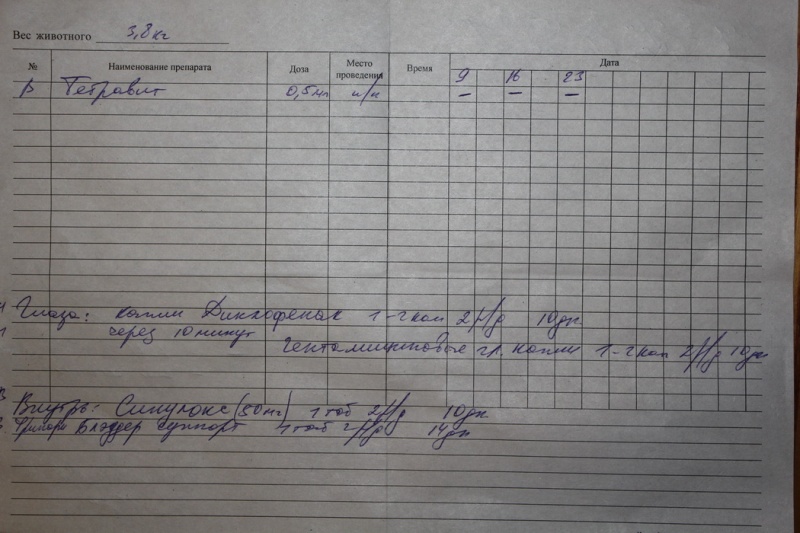 Вес животного 3,8 кг
№ Наименование препарата Доза Место проведения Время Дата
9 16 23
Тетравит 0,5 мл п/к – – –
Глаза: капли Диклофенак 1-2 кап 2 р/д 10 дн
через 10 минут
Гентамициновые гл. капли 1-2 кап 2 р/д 10 дн
Внутрь: Синулокс (50 мг) 1 таб 2 р/д 10 дн
Блэддер Суппорт 1 таб 2 р/д 14 дн